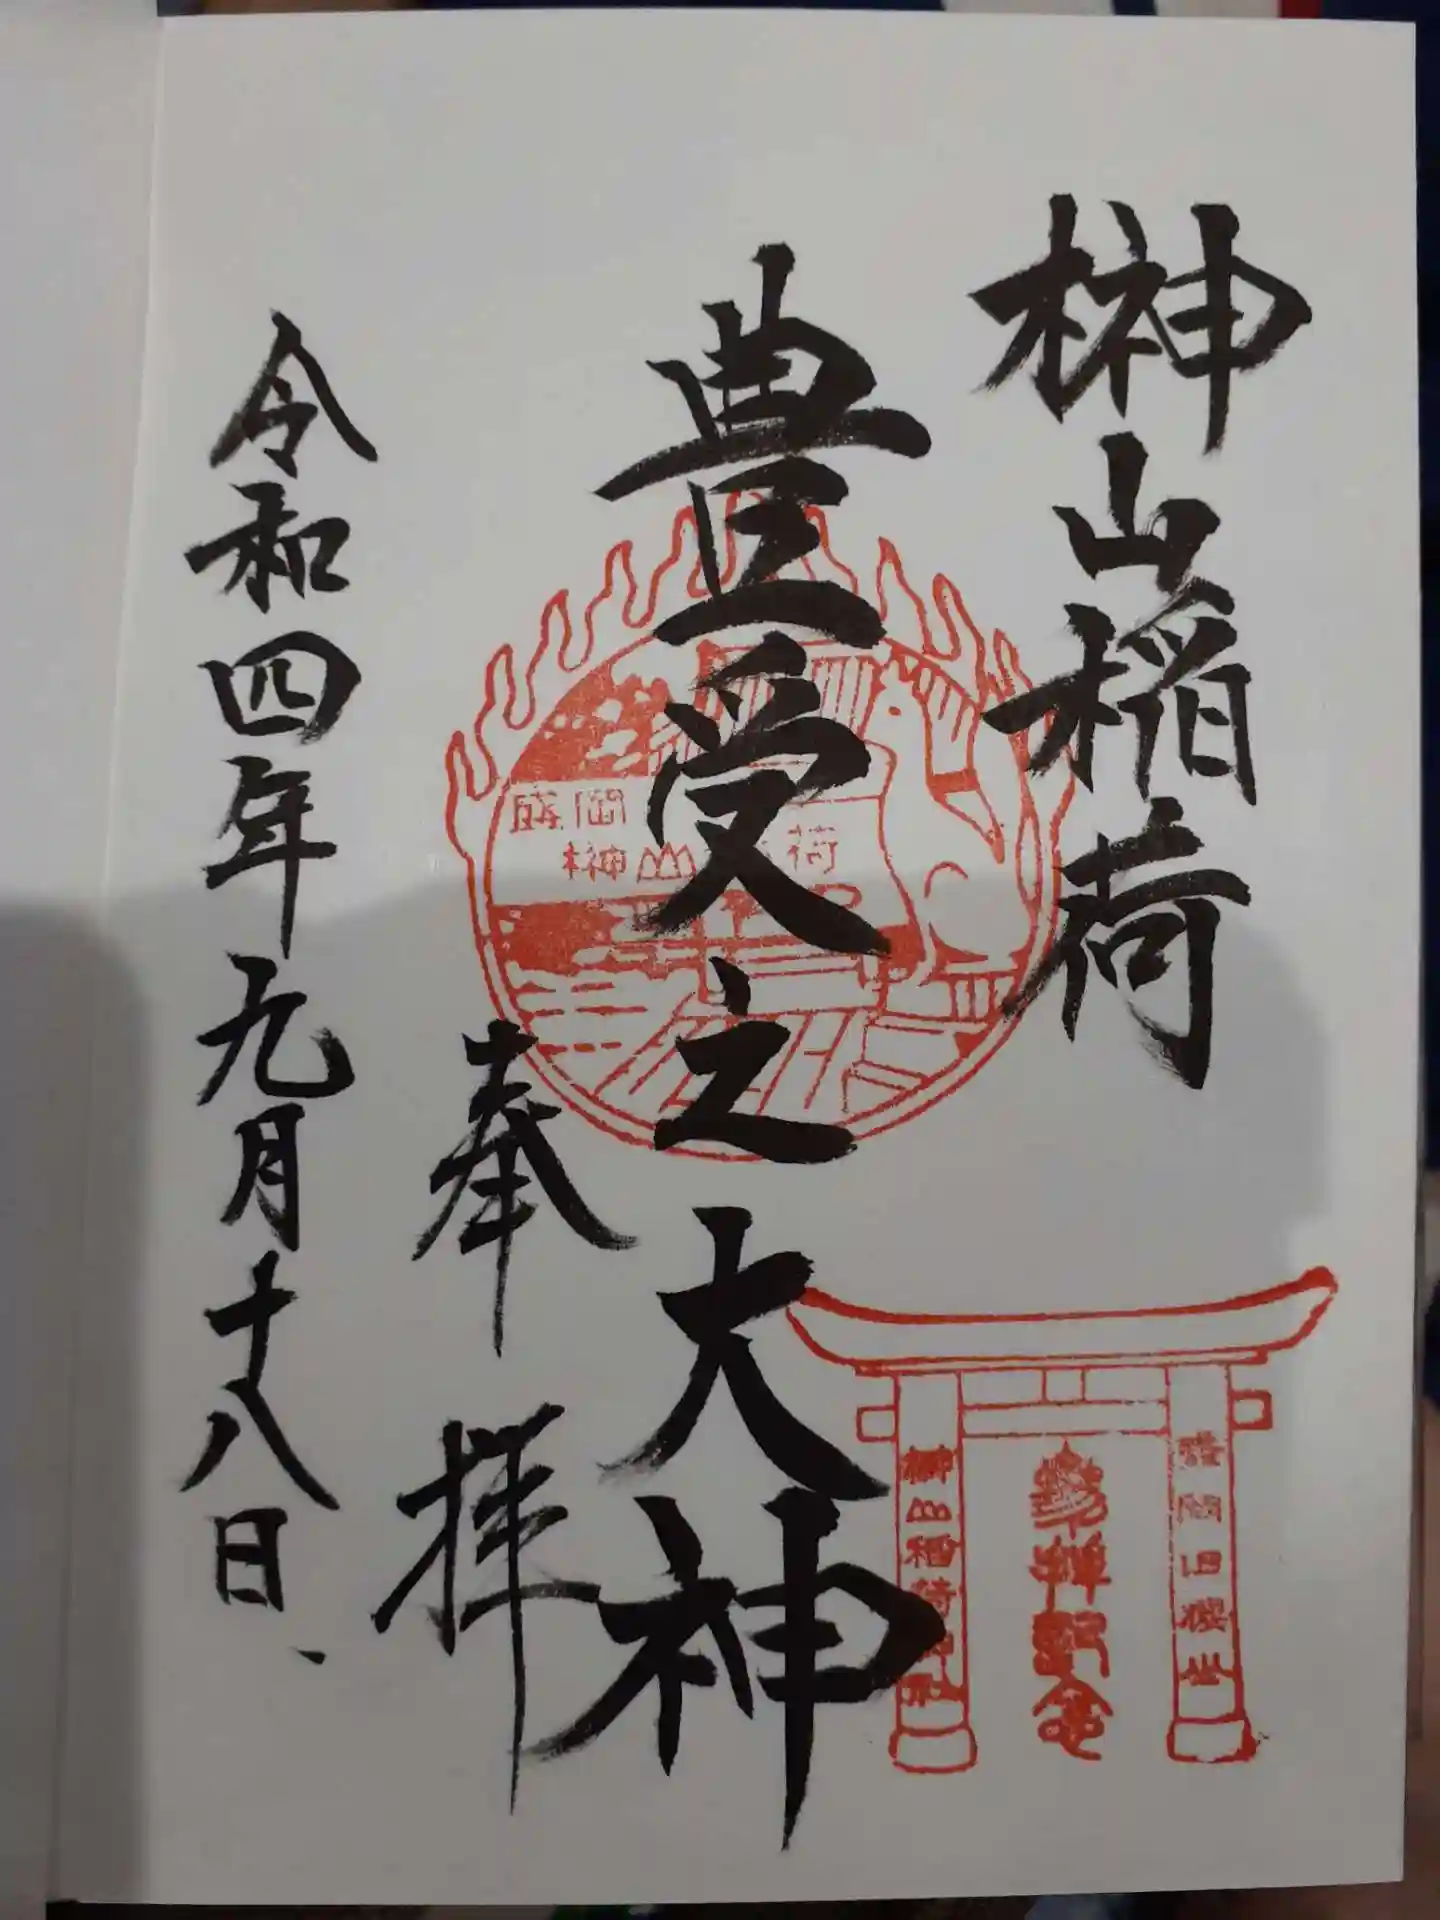 榊山稲荷
豊受之大神
奉拝
令和四年九月十八日
盛岡
榊山
荷
榊山稲荷神社
盛岡旧櫻山
参拝記念